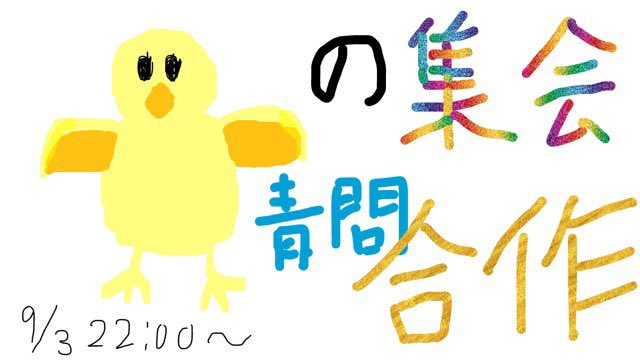 の集会
青問
合作
9/3 22:00～